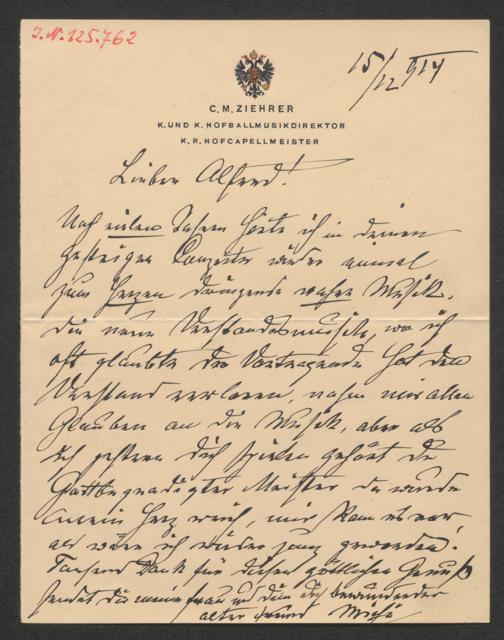 I.N. 125.762
15/12 914
C. M. ZIEHRER
K. UND K. HOFBALLMUSIKDIREKTOR
K. R. HOFCAPELLMEISTER
Lieber Alfred!
Nach vielen Jahren hörte ich in deinem
gestrigen Conzerte wieder einmal
zum Herzen dringende wahre Musik.
Die neue Verstandesmusik, wo ich
oft glaubte der Vortragende hat den
Verstand verloren, nahm mir allen
Glauben an die Musik, aber als
ich gestern dich spielen gehört du
Gottbegnadigter Meister da wurde
mein Herz weich, mir kam es vor,
als wäre ich wieder jung geworden.
Tausend Dank für diesen göttlichen Genuß
sendet dir meine Frau u dein dich bewundernder
alter Freund Michi